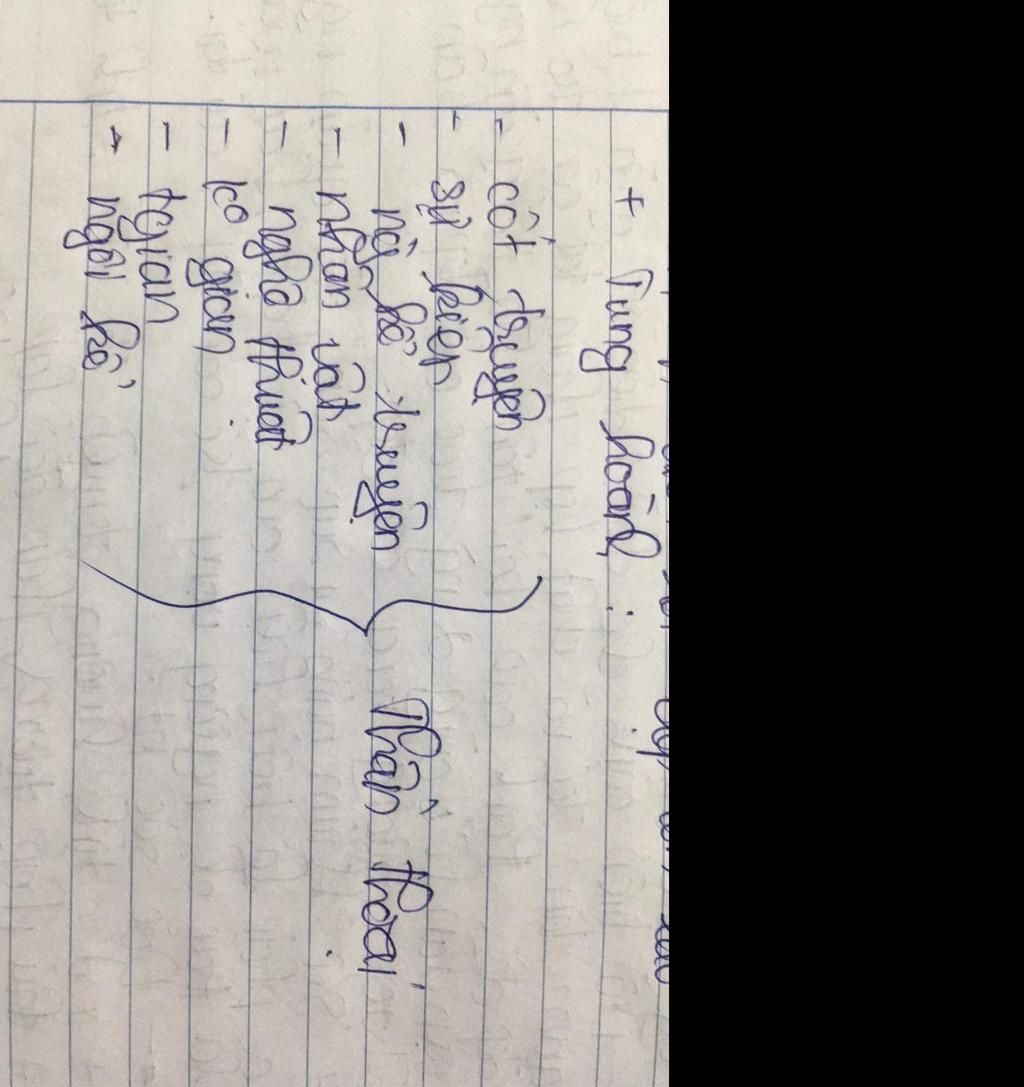 + Tung hoành:
- cốt truyện
- sự kiện
- ng kể truyện
- nhân vật
- nghệ thuật
- ko gian
- tgian
- ngôi kể
Thần thoại